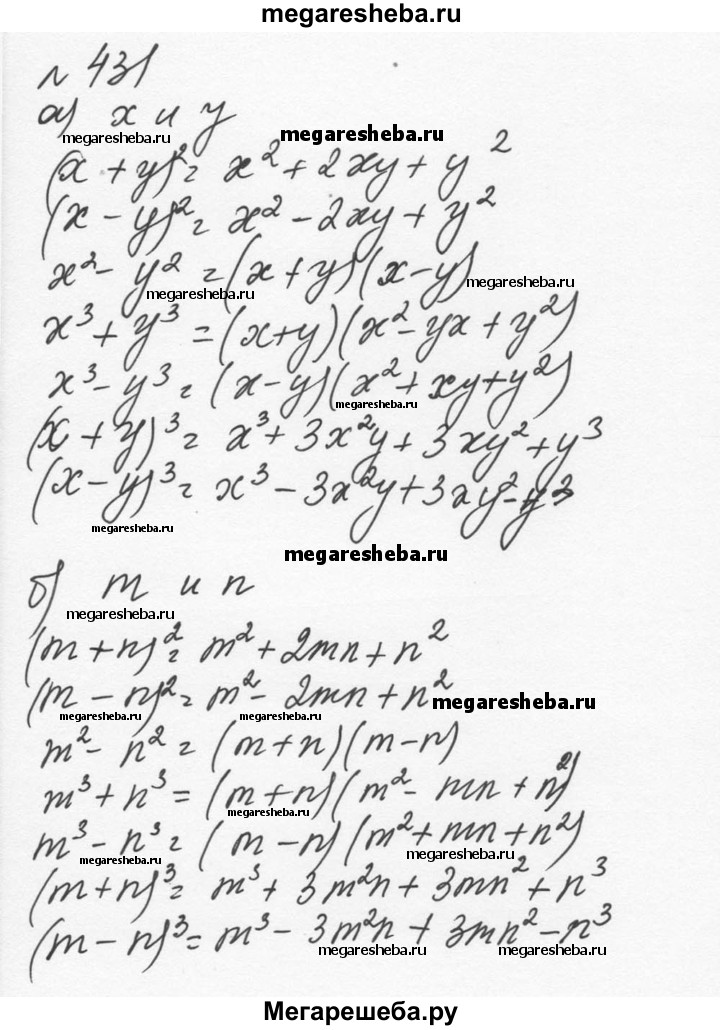 megaresheba.ru
№ 431
а) x и y
megaresheba.ru megaresheba.ru
(x + y)² = x² + 2xy + y²
(x - y)² = x² - 2xy + y²
x² - y² = (x + y)(x - y)
megaresheba.ru megaresheba.ru
x³ + y³ = (x + y)(x² - yx + y²)
x³ - y³ = (x - y)(x² + xy + y²)
megaresheba.ru
(x + y)³ = x³ + 3x²y + 3xy² + y³
(x - y)³ = x³ - 3x²y + 3xy² - y³
megaresheba.ru
megaresheba.ru
б) m и n
megaresheba.ru
(m + n)² = m² + 2mn + n²
(m - n)² = m² - 2mn + n²
megaresheba.ru megaresheba.ru megaresheba.ru
m² - n² = (m + n)(m - n)
m³ + n³ = (m + n)(m² - mn + n²)
megaresheba.ru
m³ - n³ = (m - n)(m² + mn + n²)
megaresheba.ru megaresheba.ru
(m + n)³ = m³ + 3m²n + 3mn² + n³
(m - n)³ = m³ - 3m²n + 3mn² - n³
megaresheba.ru megaresheba.ru
Мегарешеба.ру